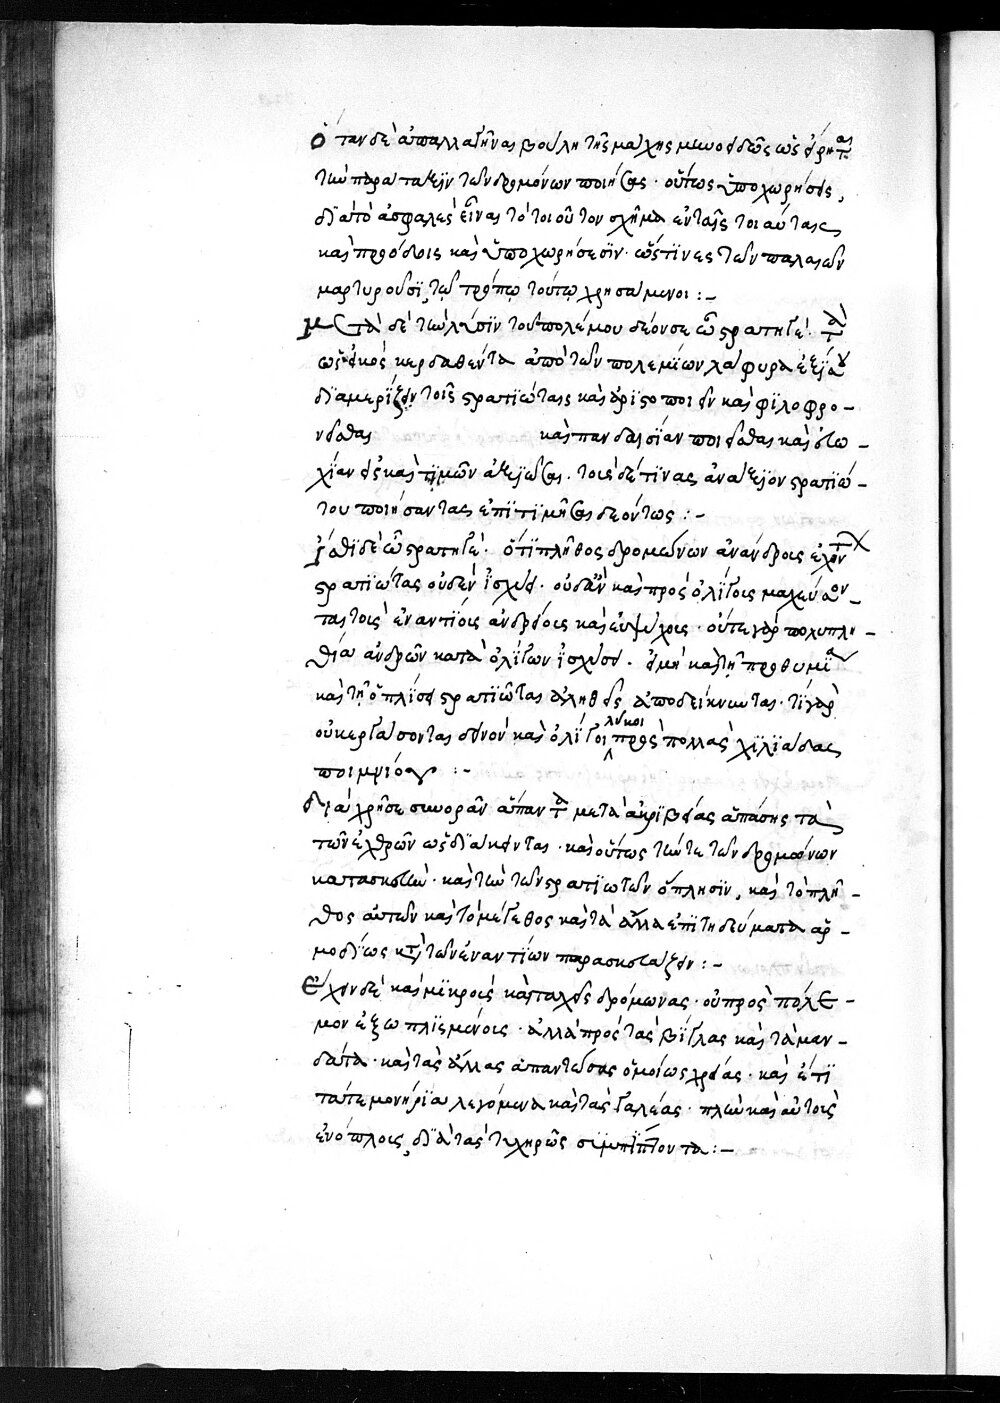 Ὅταν δὲ ἀπαλλαγῆναι βούλη τῆς μάχης μηνοειδῶς ὡς εἴρηται
τὴν παράταξιν τῶν δρομόνων ποιήσεις· οὕτως ὑποχωρήσεις,
διὰ τὸ ἀσφαλὲς εἶναι τὸ τοιοῦτον σχῆμα ἐν ταῖς τοιαύταις
καὶ προόδοις καὶ ὑποχωρήσεσιν· ὥς τινες τῶν παλαιῶν
μαρτυροῦσι, τῷ τρόπῳ τούτῳ χρησάμενοι :–
Μετὰ δὲ τὴν λύσιν τοῦ πολέμου δέον σε ὦ στρατηγέ· τὰ
ὡς εἰκὸς κερδαθέντα ἀπὸ τῶν πολεμίων λάφυρα ἐξίσου
διαμερίζειν τοῖς στρατιώταις καὶ ἀριστοποιεῖν καὶ φιλοφρο–
νεῖσθαι καὶ πανδαισίαν ποιεῖσθαι καὶ εὐω–
χίαν εἰς καὶ τιμῶν ἀξιῶσαι. τοὺς δέ τινας ἀνάξιον στρατιώ–
του ποιήσαντας ἐπιτιμῆσαι δεόντως :–
Ἴσθι δὲ ὦ στρατηγέ· ὅτι πλῆθος δρομώνων ἀνάνδροις ἔχον
στρατιώτας οὐδὲν ἰσχύει· οὐδ' ἂν καὶ πρὸς ὀλίγοις μάχεύσον–
ται τοῖς ἐναντίοις ἀνδρείοις καὶ εὐψύχοις· οὔτε γὰρ πολυπλη–
θία ἀνδρῶν κατὰ ὀλίγων ἰσχύσει. εἰ μὴ καὶ τῇ προθυμίᾳ
καὶ τῇ ὁπλίσει στρατιῶται ἀληθεῖς ἀποδείκνωνται· τί γὰρ
οὐκ ἐργάσονται δεινὸν καὶ ὀλίγοι λύκοι πρὸς πολλὰς χιλιάδας
ποιμνίου :–
Διὰ χρῆσε συνορᾶν ἅπαντα μετὰ ἀκριβείας ἁπάσης τὰ
τῶν ἐχθρῶν ὡς διάκεινται· καὶ οὕτως τήν τε τῶν δρομώνων
κατασκευὴν· καὶ τὴν τῶν στρατιωτῶν ὅπλησιν, καὶ τὸ πλῆ–
θος αὐτῶν καὶ τὸ μέγεθος καὶ τὰ ἄλλα ἐπιτηδεύματα ἁρ–
μοδίως κατὰ τῶν ἐναντίων παρασκευάζειν :–
Ἔχειν δὲ καὶ μικροὺς καὶ ταχεῖς δρόμωνας· οὐ πρὸς πόλε–
μον ἐξωπλισμένοις· ἀλλὰ πρὸς τὰς βίγλας καὶ τὰ μαν–
δάτα· καὶ τὰς ἄλλας ἀπαντώσας ὁμοίως χρείας· καὶ ἔτι
τά τε μονήρια λεγόμενα καὶ τὰς γαλέας· πλὴν καὶ αὐτοὺς
ἐνόπλοις, διὰ τὰς τυχηρῶς συμπίπτοντα :–